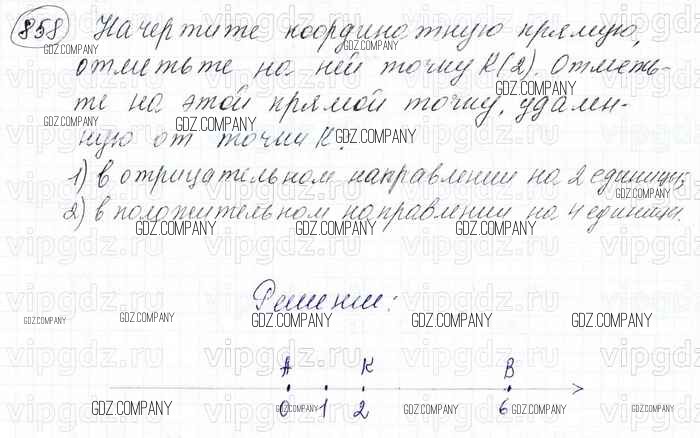 858 Начертите координатную прямую,
отметьте на ней точку К(2). Отметь-
те на этой прямой точку, удален-
ную от точки К:
1) в отрицательном направлении на 2 единицы;
2) в положительном направлении на 4 единицы.
Решение:
А К В
0 1 2 6